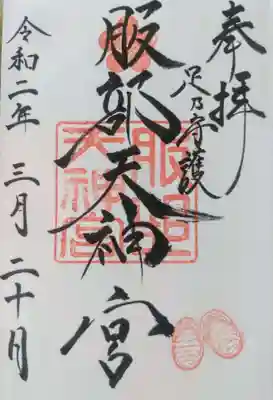 奉拝
足乃守護
服部天神宮
服部
天神宮
令和二年三月二十日